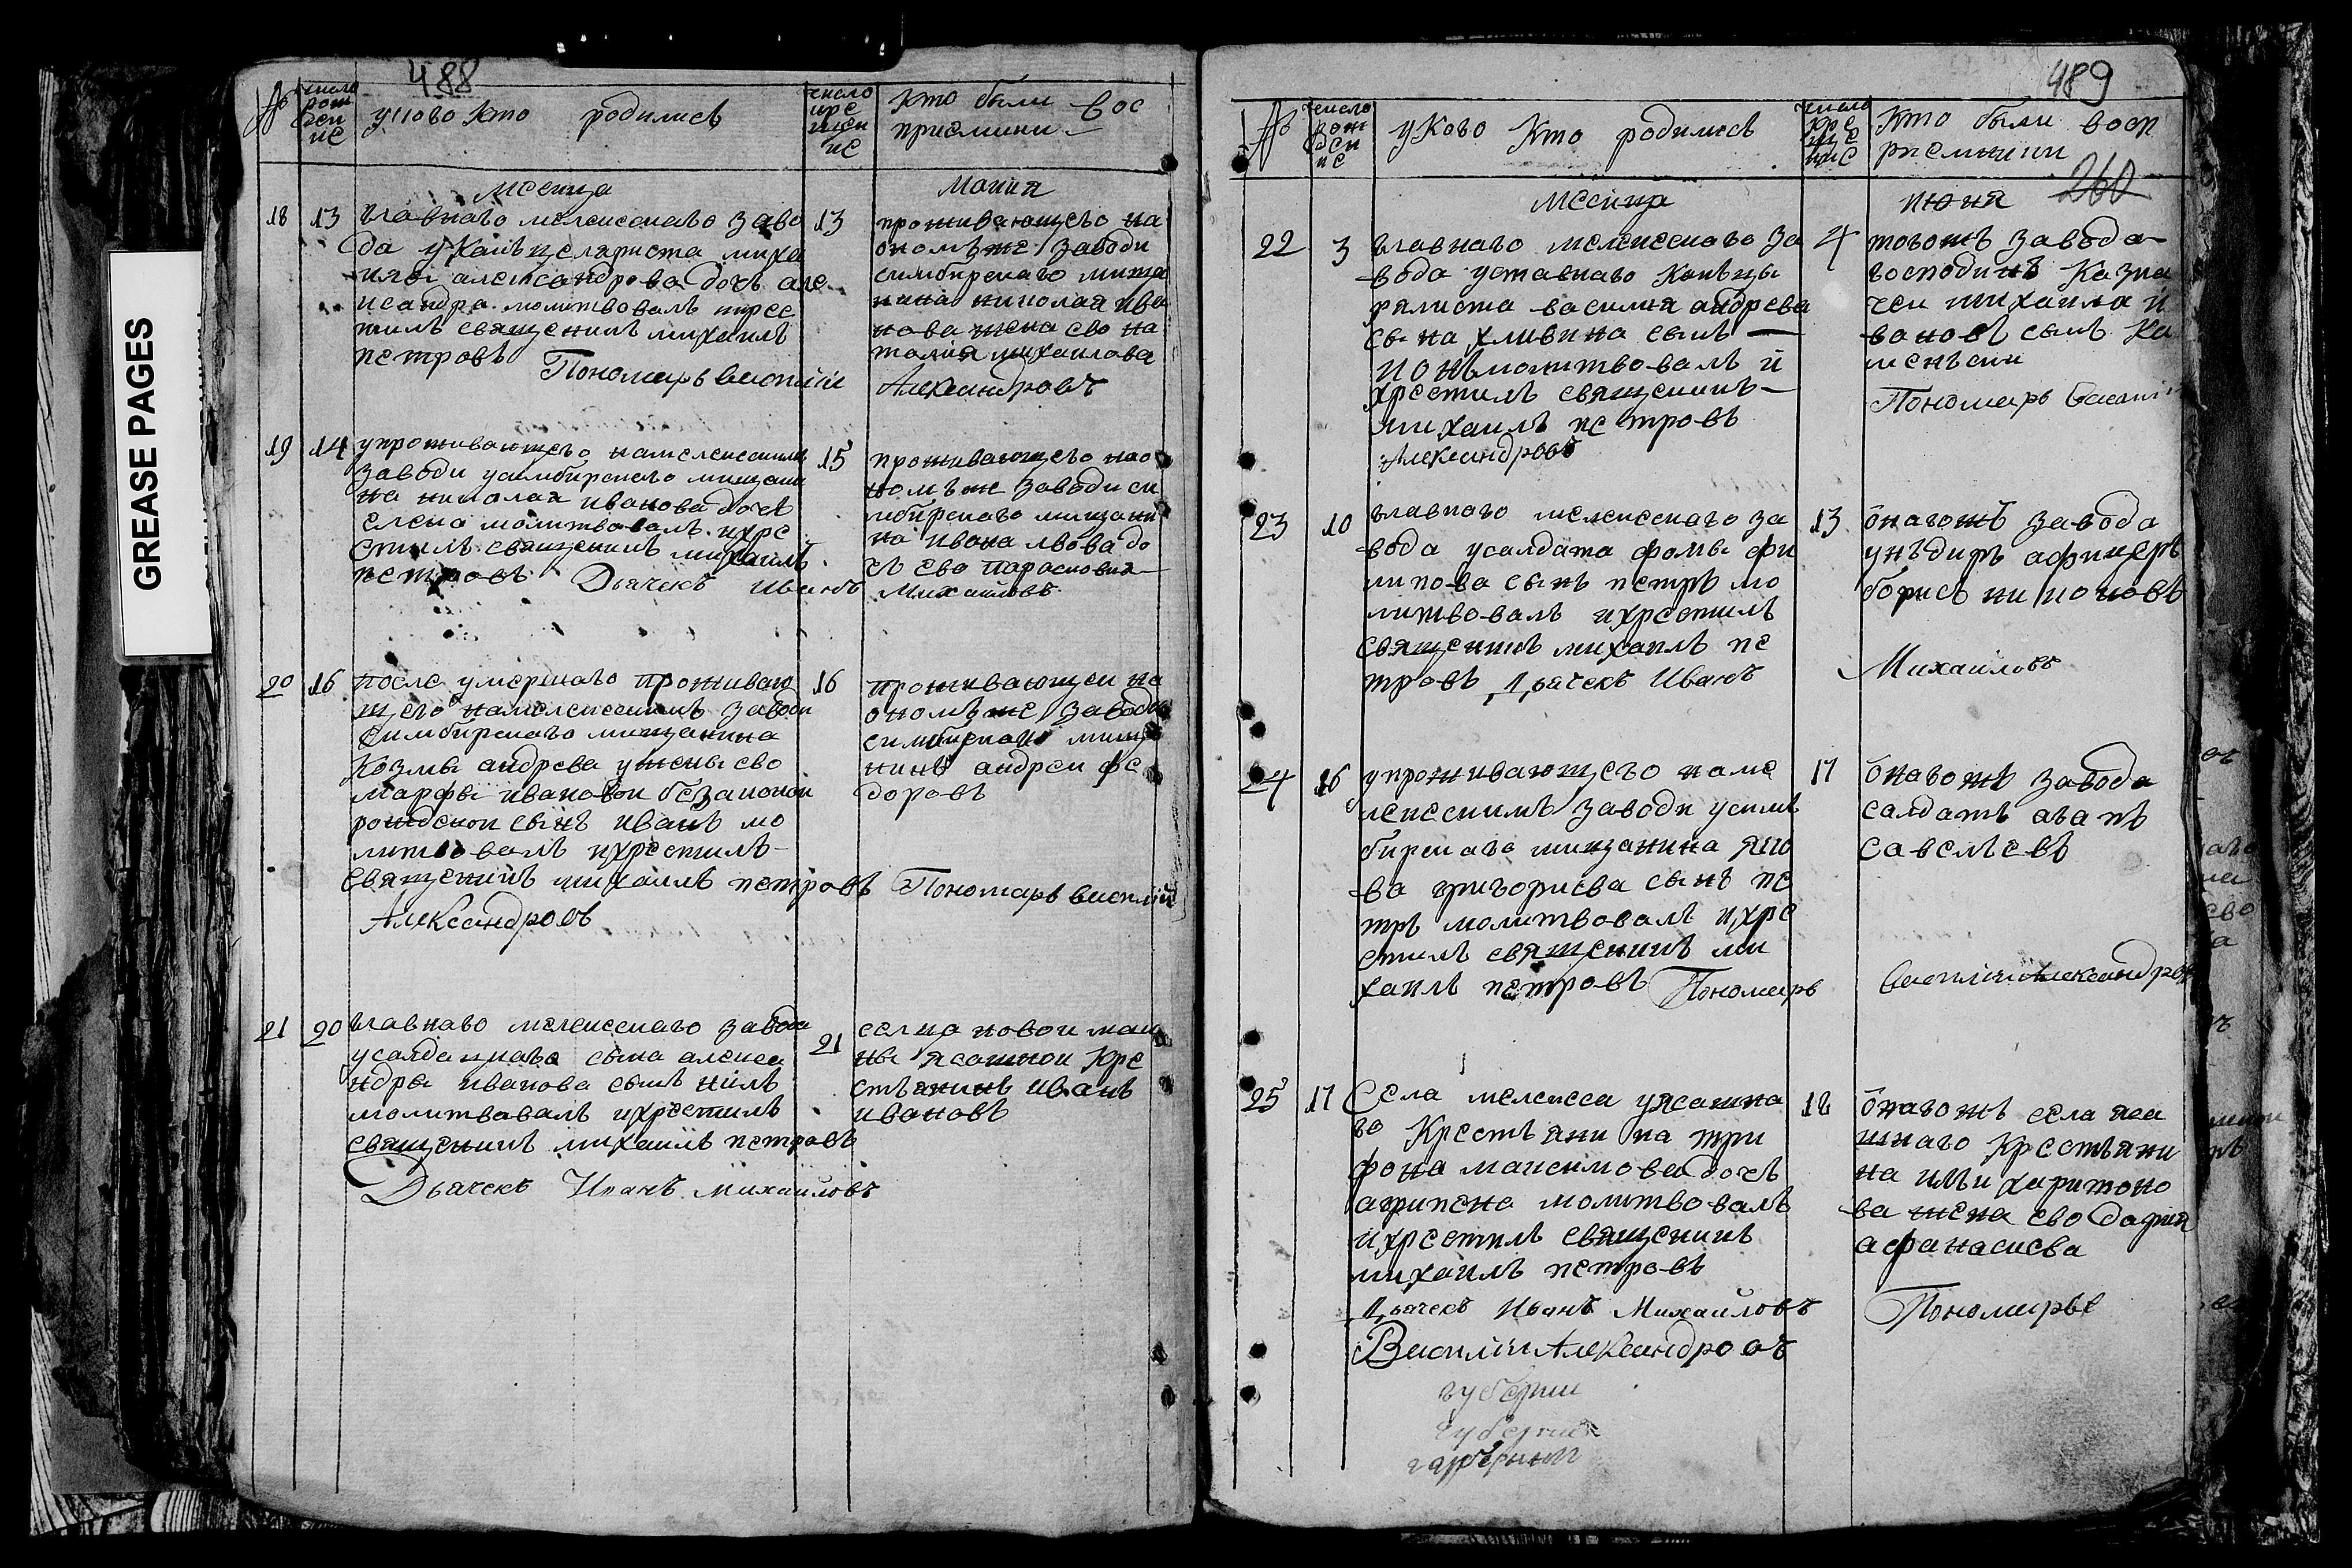 GREASE PAGES
488
№
число рож дени ие
у ково кто родились
число кре щен ие
кто были вос
приемники
месяца
маиия
18
13
главнаго мелекесскаго заво
да у канцеляриста миха
ила александрова дочь але
ксандра молитвовалъ икрес
тилъ священникъ михаилъ
петровъ Пономарь василии
13
проживающего на
ономъ же заводи
симбирскаго мища
нина николая ива
нова жена ево на
талия михаилова
Александровъ
19
14
упроживающего намелекесскомъ
заводи усимбирскаго мищани
на николая иванова дочь
елена молитвовалъ ихре
стилъ священникъ михаилъ
петровъ Дьячекъ Иванъ
15
проживающего нао
номъ же заводи си
мбирскаго мищани
на ивана львова до
чь ево парасковия
Михаиловъ
20
16
после умершаго проживаю
щего намелекесскомъ заводи
симбирскаго мищанина
Козмы андрева ужены ево
марфы ивановои беззаконои
рожденои сынъ иванъ мо
литвовалъ ихрестилъ
священникъ михаилъ петровъ
Александровъ
16
проживающеи на
ономъ же заводи
симбирскои мища
нинъ андреи фе
доровъ
Пономарь василии
21
20
главнаго мелекесскаго завода
усалдацкаго сына алекса
ндры иванова сынъ нилъ
молитвовалъ ихрестилъ
священникъ михаилъ петровъ
Дьячекъ Иванъ Михаиловъ
21
селца новои маи
ны ясашнои кре
стьянинъ иванъ
ивановъ
489
№
число рож ден ие
у ково кто родилисъ
число кре ще ние
кто были восп
риемники
260
месяца
июня
22
3
главнаго мелекесскаго за
вода уставнаго канъцы
ялиста василия андрева
сына хливина сынъ
ионъ молитвовалъ и
хрестилъ священникъ
михаилъ петровъ
Александровъ
4
тогожъ завода
господинъ казна
чеи михаила и
вановъ сынъ ка
менъски
Пономарь василии
23
10
главнаго мелекесскаго за
вода усалдата фомы фи
липова сынъ петръ мо
литвовалъ ихрестилъ
священникъ михаилъ пе
тровъ Дьячекъ Иванъ
13
онагожъ завода
унъдиръ афицеръ
борисъ никоновъ
Михаиловъ
24
16
упроживающего наме
лекесскимъ заводи усим
бирскаго мищанина яко
ва григориева сынъ пе
тръ молитвовалъ ихре
стилъ священникъ ми
хаилъ петровъ Пономарь
17
онагожъ завода
салдатъ агапъ
савельевъ
василииАлександровъ
25
17
Села мелекеса уясашна
го Крестьянина три
фона максимова дочь
агрипена молитвовалъ
ихрестилъ священникъ
михаилъ петровъ
Дьячекъ Иванъ Михаиловъ
ВасилиАлександровъ
18
онагожъ села яса
шнаго Крестъяни
на ильи харитоно
ва жена ево дария
афанасиева
Пономарь
губернии
губернии